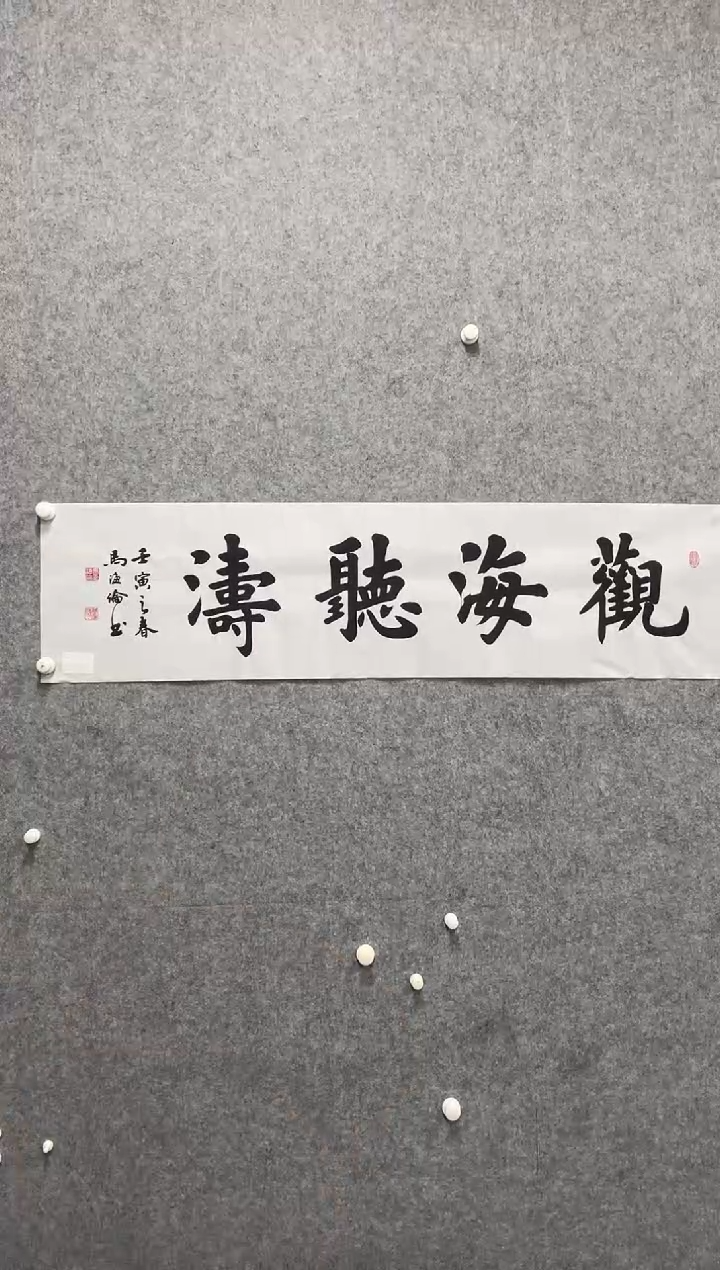 觀海聽濤
壬寅之春
馬海倫书